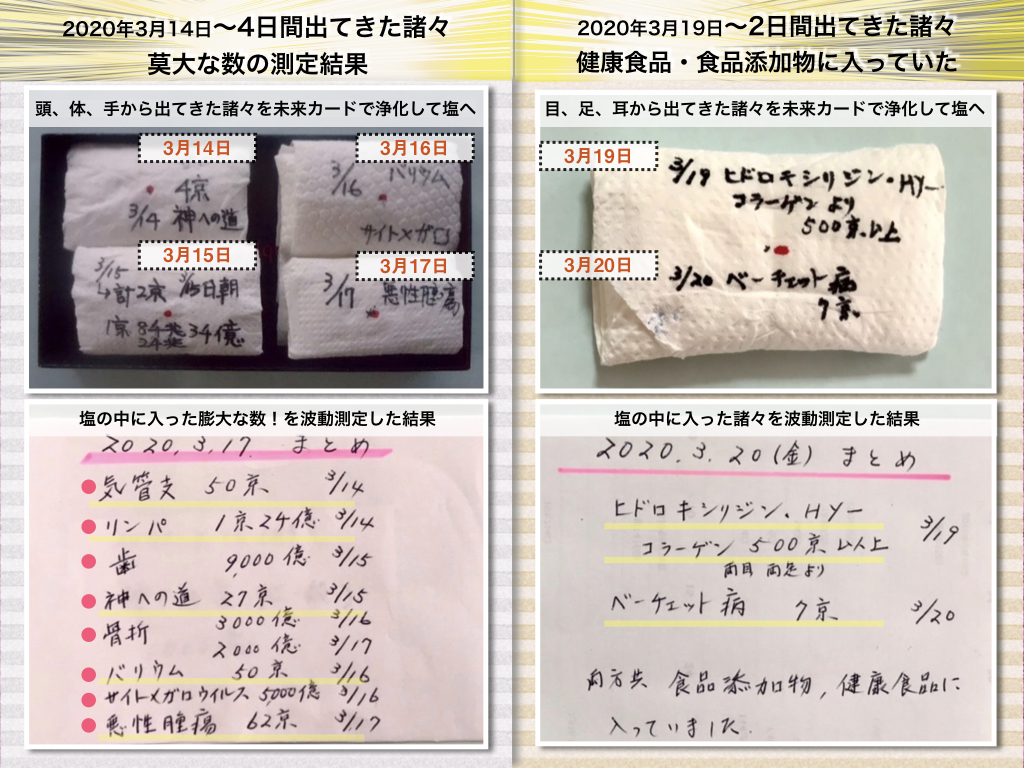 2020年3月14日〜4日間出てきた諸々
莫大な数の測定結果
頭、体、手から出てきた諸々を未来カードで浄化して塩へ
3月14日
4京
3/14 神への道
3月16日
3/16
バリウム
サイトメガロ
3月15日
3/15
→計2京 3/15日朝
1京 84兆 34億
24兆
3月17日
3/17 悪性腫瘍
塩の中に入った膨大な数！を波動測定した結果
2020.3.17. まとめ
気管支 50京 3/14
リンパ 1京24億 3/14
歯 9,000億 3/15
神への道 27京 3/15
骨折 3000億 3/16
2000億 3/17
バリウム 50京 3/16
サイトメガロウイルス 5,000億 3/16
悪性腫瘍 62京 3/17
2020年3月19日〜2日間出てきた諸々
健康食品・食品添加物に入っていた
目、足、耳から出てきた諸々を未来カードで浄化して塩へ
3月19日
3/19 ヒドロキシリジン・HY−
コラーゲンより
500京以上
3月20日
3/20 ベーチェット病
7京
塩の中に入った諸々を波動測定した結果
2020.3.20(金) まとめ
ヒドロキシリジン・HY−
3/19
コラーゲン 500京以上
両目 両足より
ベーチェット病 7京 3/20
両方共 食品添加物,健康食品に
入っていました.